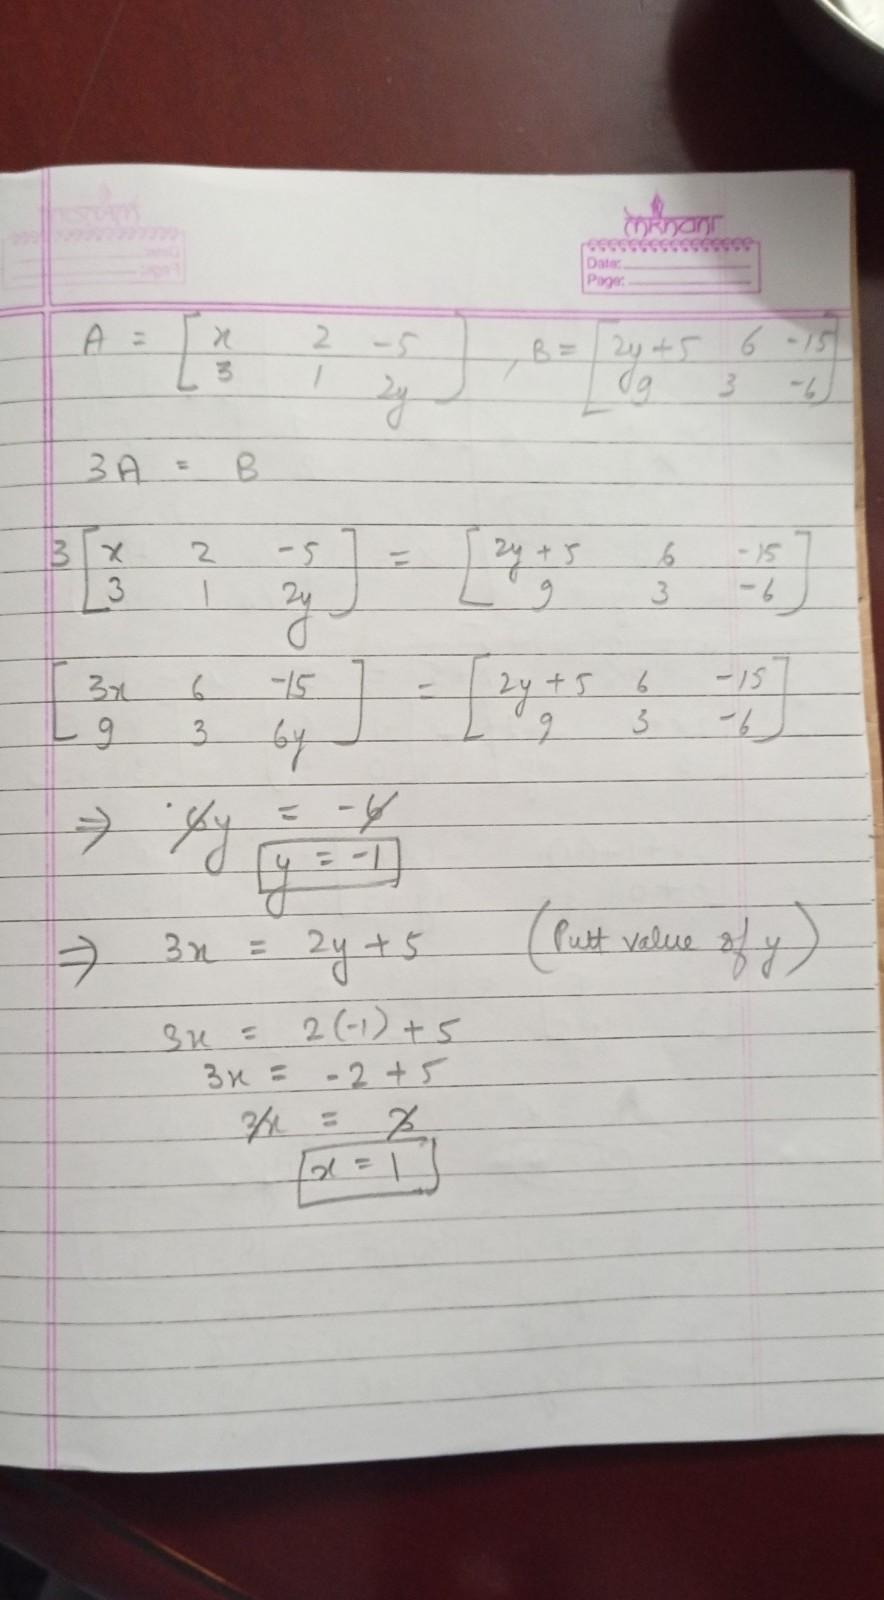 Date:
Page:
A = [ x 2 -5
3 1 2y ] , B = [ 2y+5 6 -15
9 3 -6 ]
3A = B
3 [ x 2 -5
3 1 2y ] = [ 2y+5 6 -15
9 3 -6 ]
[ 3x 6 -15
9 3 6y ] = [ 2y+5 6 -15
9 3 -6 ]
⇒ 6y = -6
y = -1
⇒ 3x = 2y+5 (Putt value of y)
3x = 2(-1)+5
3x = -2+5
3x = 3
x = 1